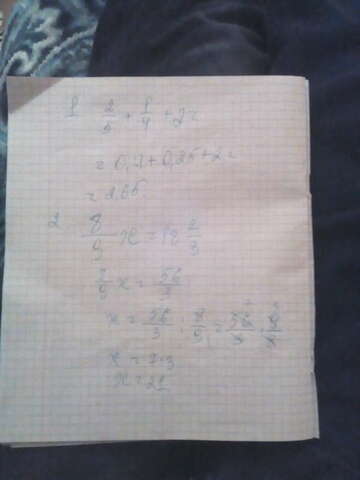 1 2/5 + 1/4 + 2 =
= 0,4 + 0,25 + 2 =
= 2,65
2 8/9 x = 18 2/3
8/9 x = 56/3
x = 56/3 : 8/9 = 56/3 · 9/8
x = 7·3
x = 21